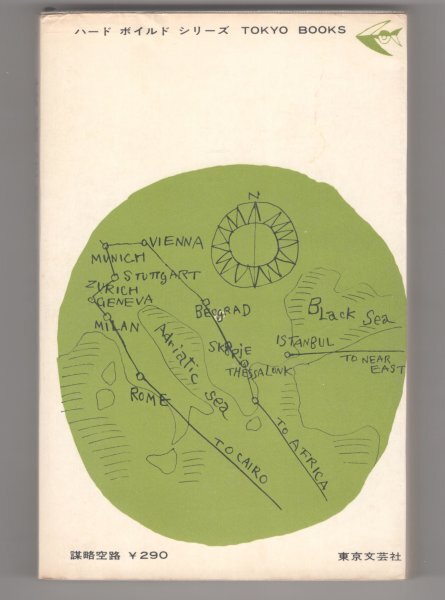 ハード ボイルド シリーズ TOKYO BOOKS
N
VIENNA
MUNICH
STUTTGART
ZURICH
GENEVA
MILAN
BEOGRAD
BLack Sea
Adriatic Sea
SKOPJE
ISTANBUL
THESSALONIK
TO NEAR
EAST
ROME
TO CAIRO
TO AFRICA
謀略空路 ¥290
東京文芸社